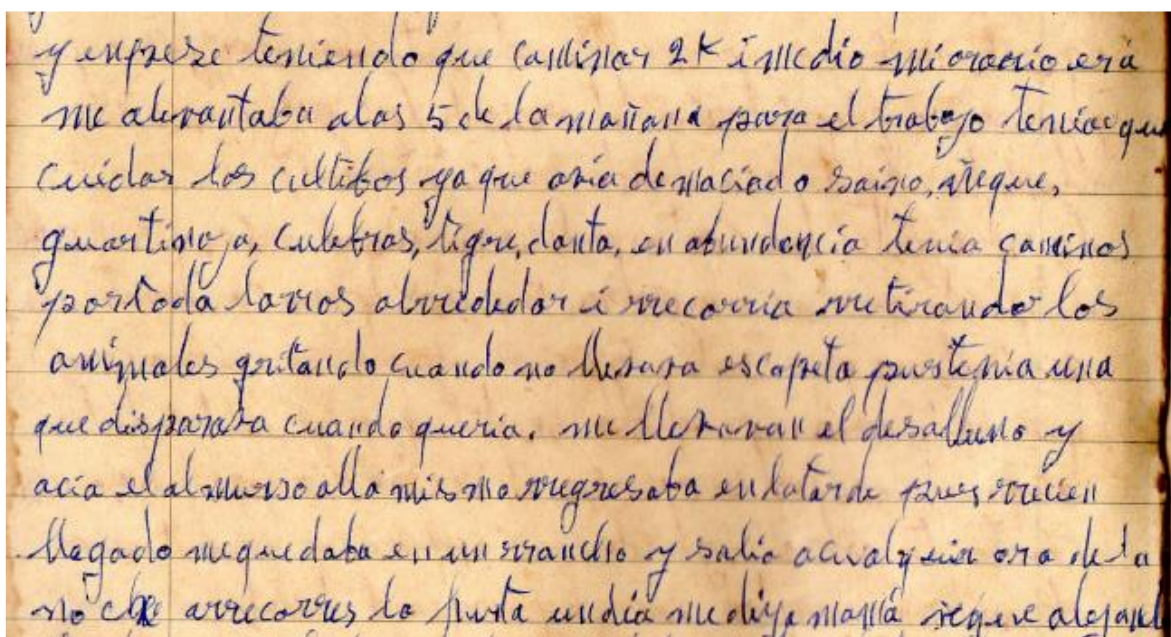 y enpese teniendo que caminar 2 K i medio mi orario era
me alevantaba alas 5 de la mañana para el trabajo tenia que
cuidar los cultibos ya que avia demaciado saino, ñeque,
guartinoja, culebras, tigre, danta, en abundancia tenia caminos
por toda la rros alrrededor i rrecorria rretirando los
animales gritando cuando no llevava escopeta pues tenia una
que disparava cuando queria. me llevavan el desalluno y
acia el almurso alla mismo rregresaba en la tarde pues rrecien
llegado me quedaba en un rrancho y salia a cualquier ora de la
noche arrecorrer la un dia me dijo mamá